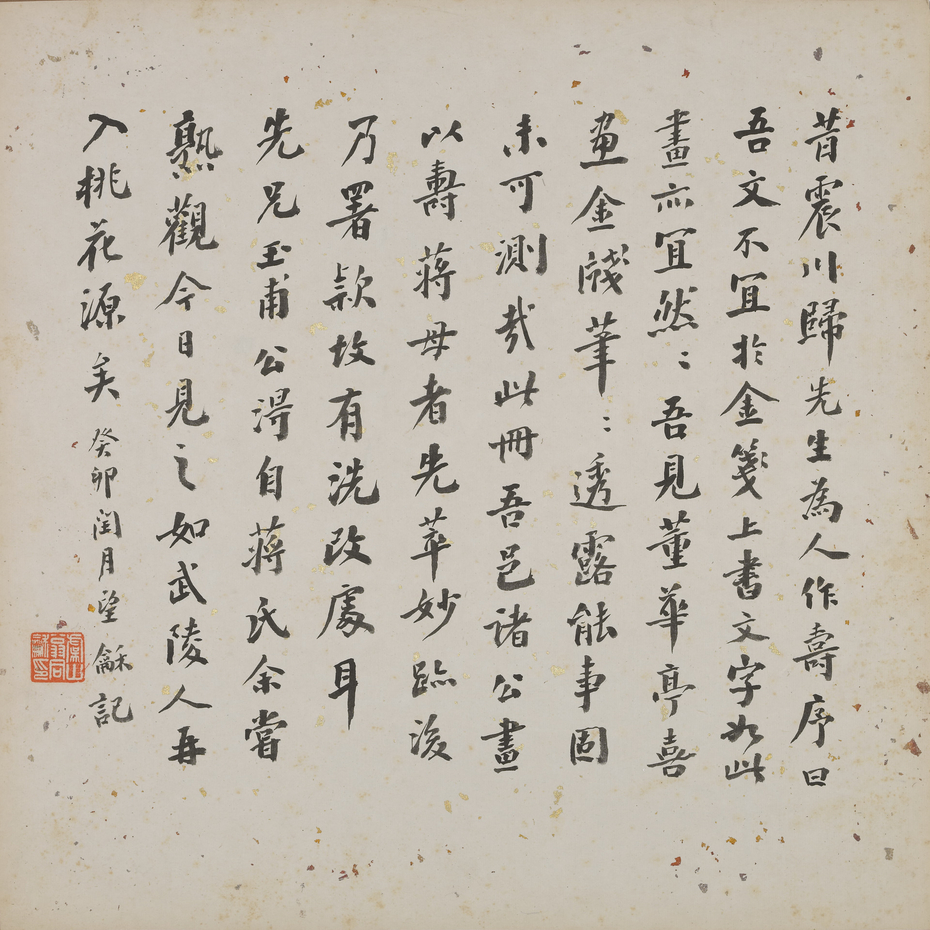 昔震川歸先生為人作壽序曰
吾文不宜於金箋上書文字如此
畫亦宜然〻吾見董華亭喜
畫金牋筆〻透露能事固
未可測哉此冊吾邑諸公畫
以壽蔣母者先萃妙跡後
乃署款故有洗改處耳
先兄玉甫公得自蔣氏余嘗
熟觀今日見之如武陵人再
入桃花源矣 癸卯閏月望 龢記
虞山翁同龢印